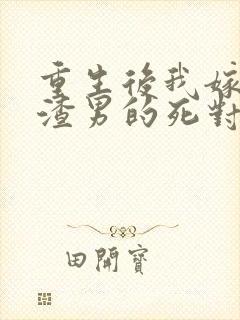 重生後我嫁
渣男的死對
田開寶